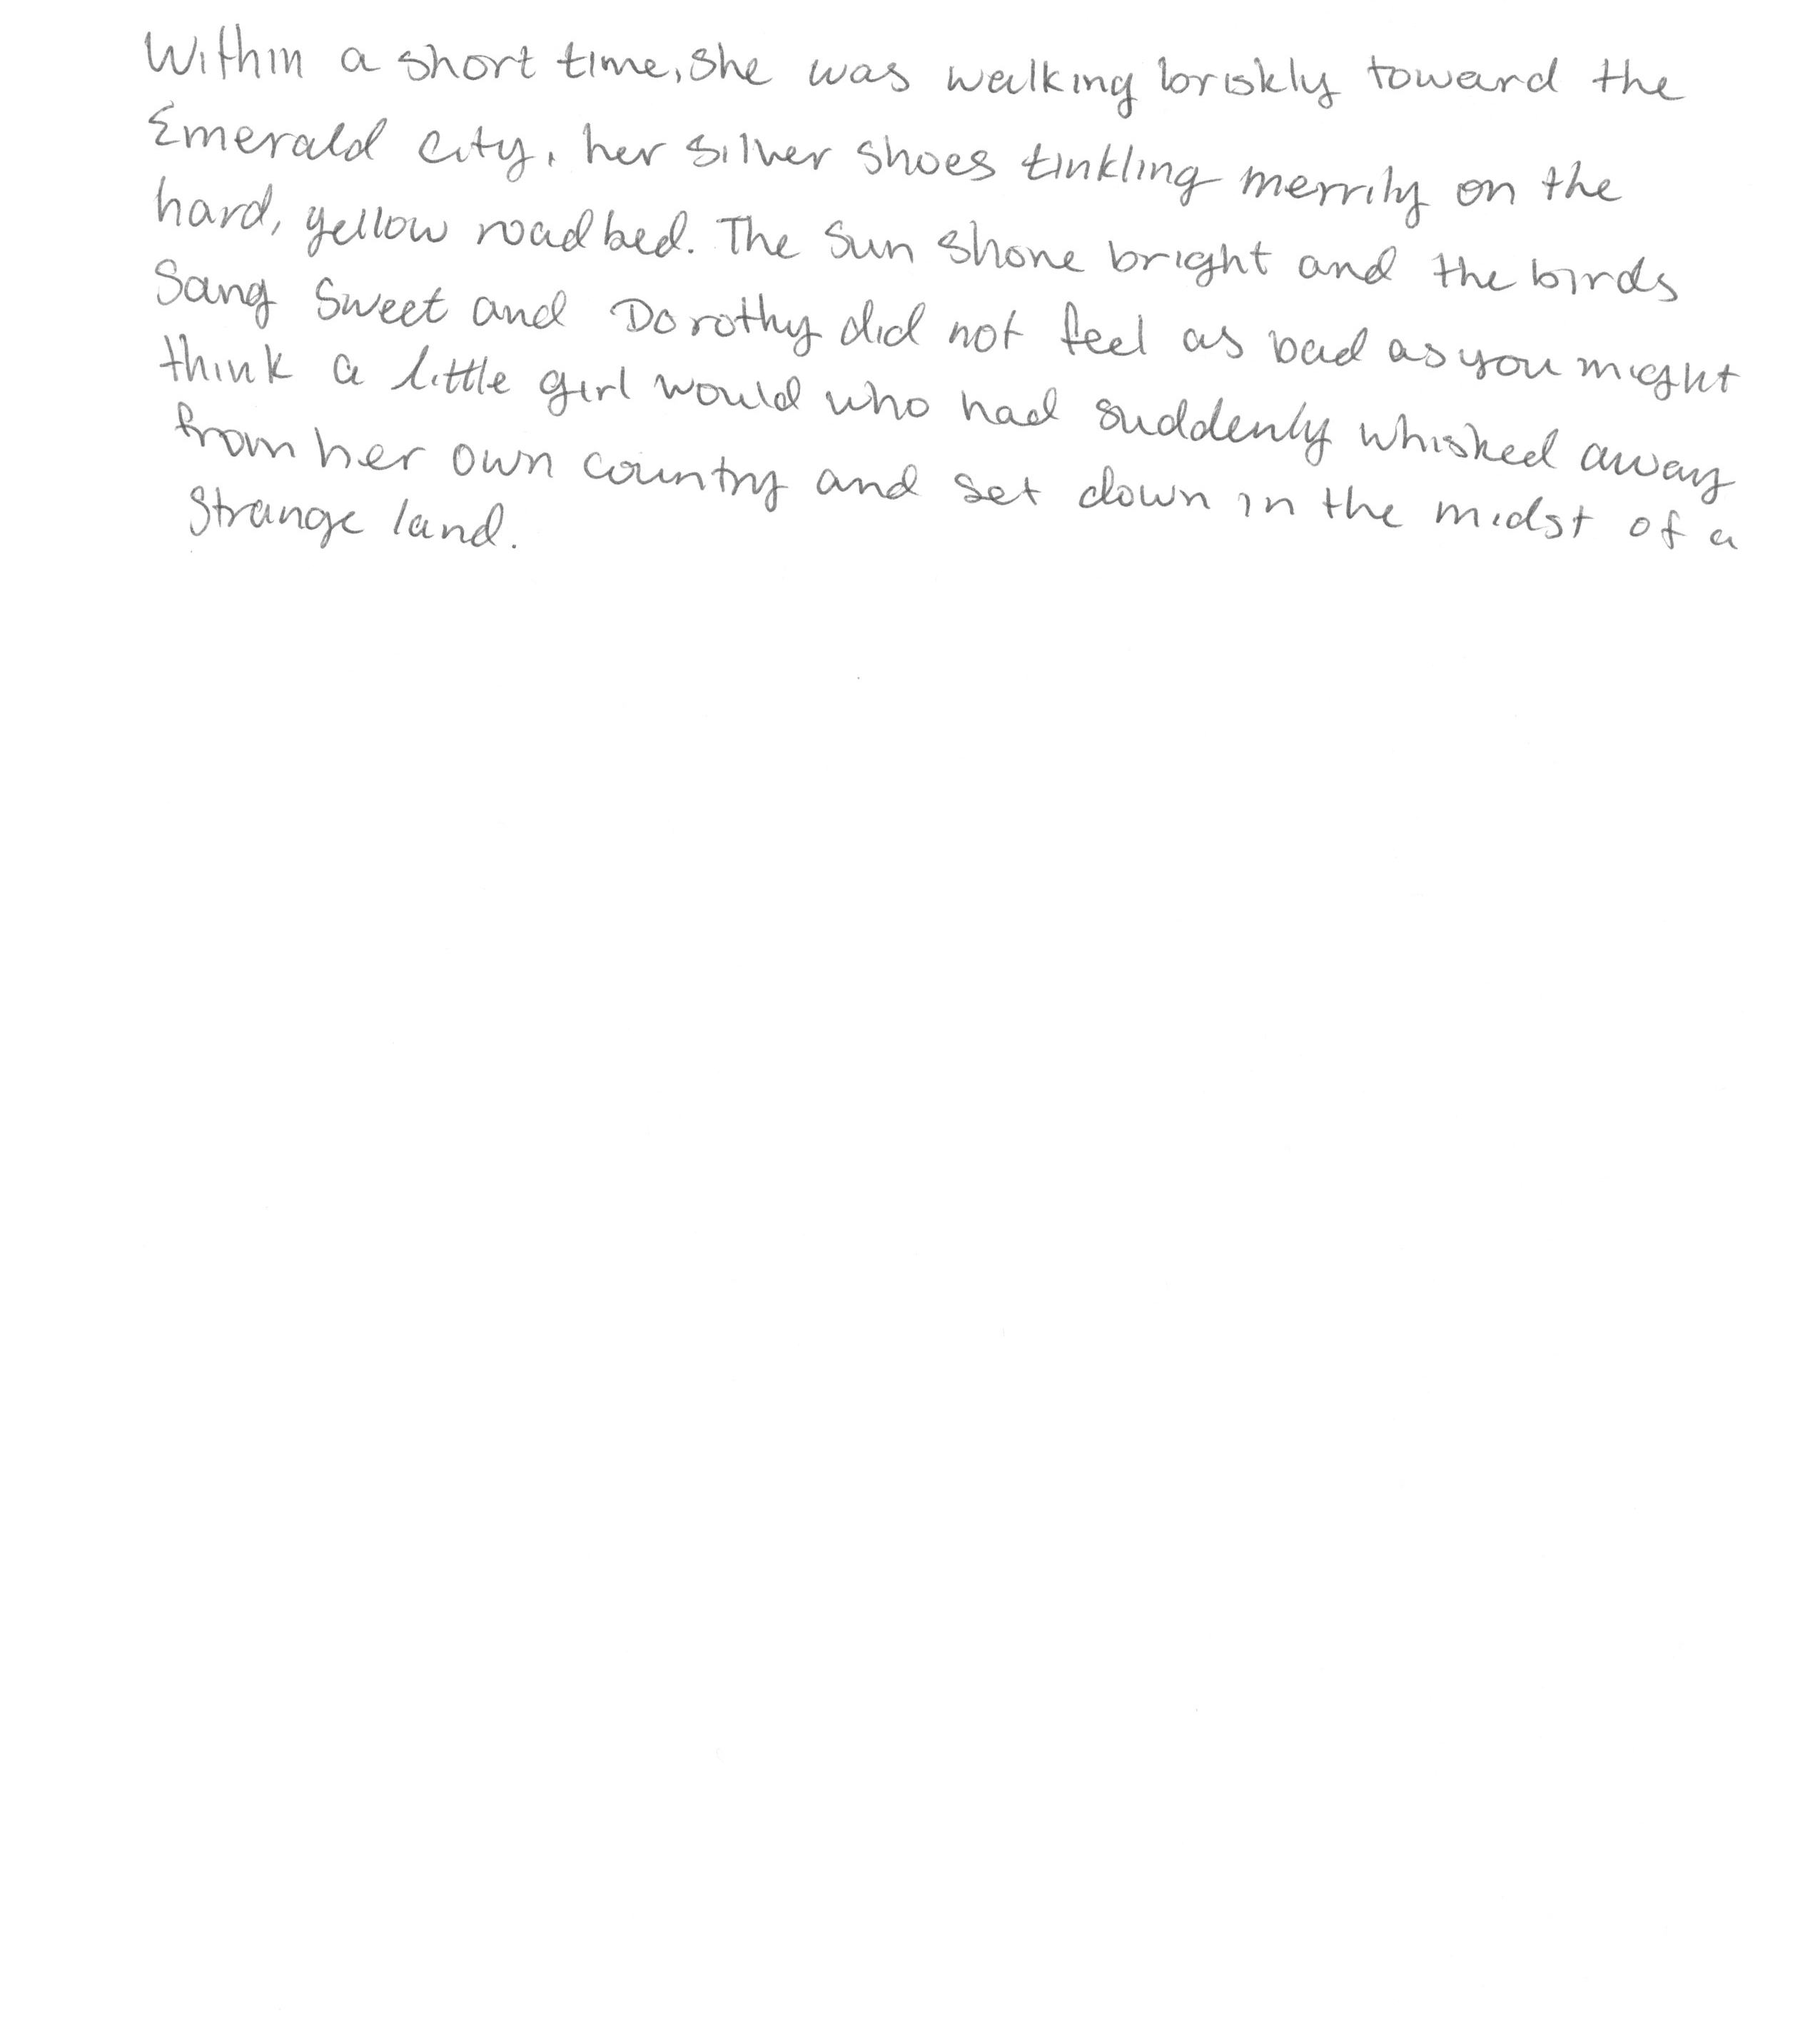 Within a short time, she was walking briskly toward the
Emerald City, her silver shoes tinkling merrily on the
hard, yellow roadbed. The sun shone bright and the birds
sang sweet and Dorothy did not feel as bad as you might
think a little girl would who had suddenly whisked away
from her own country and set down in the midst of a
strange land.